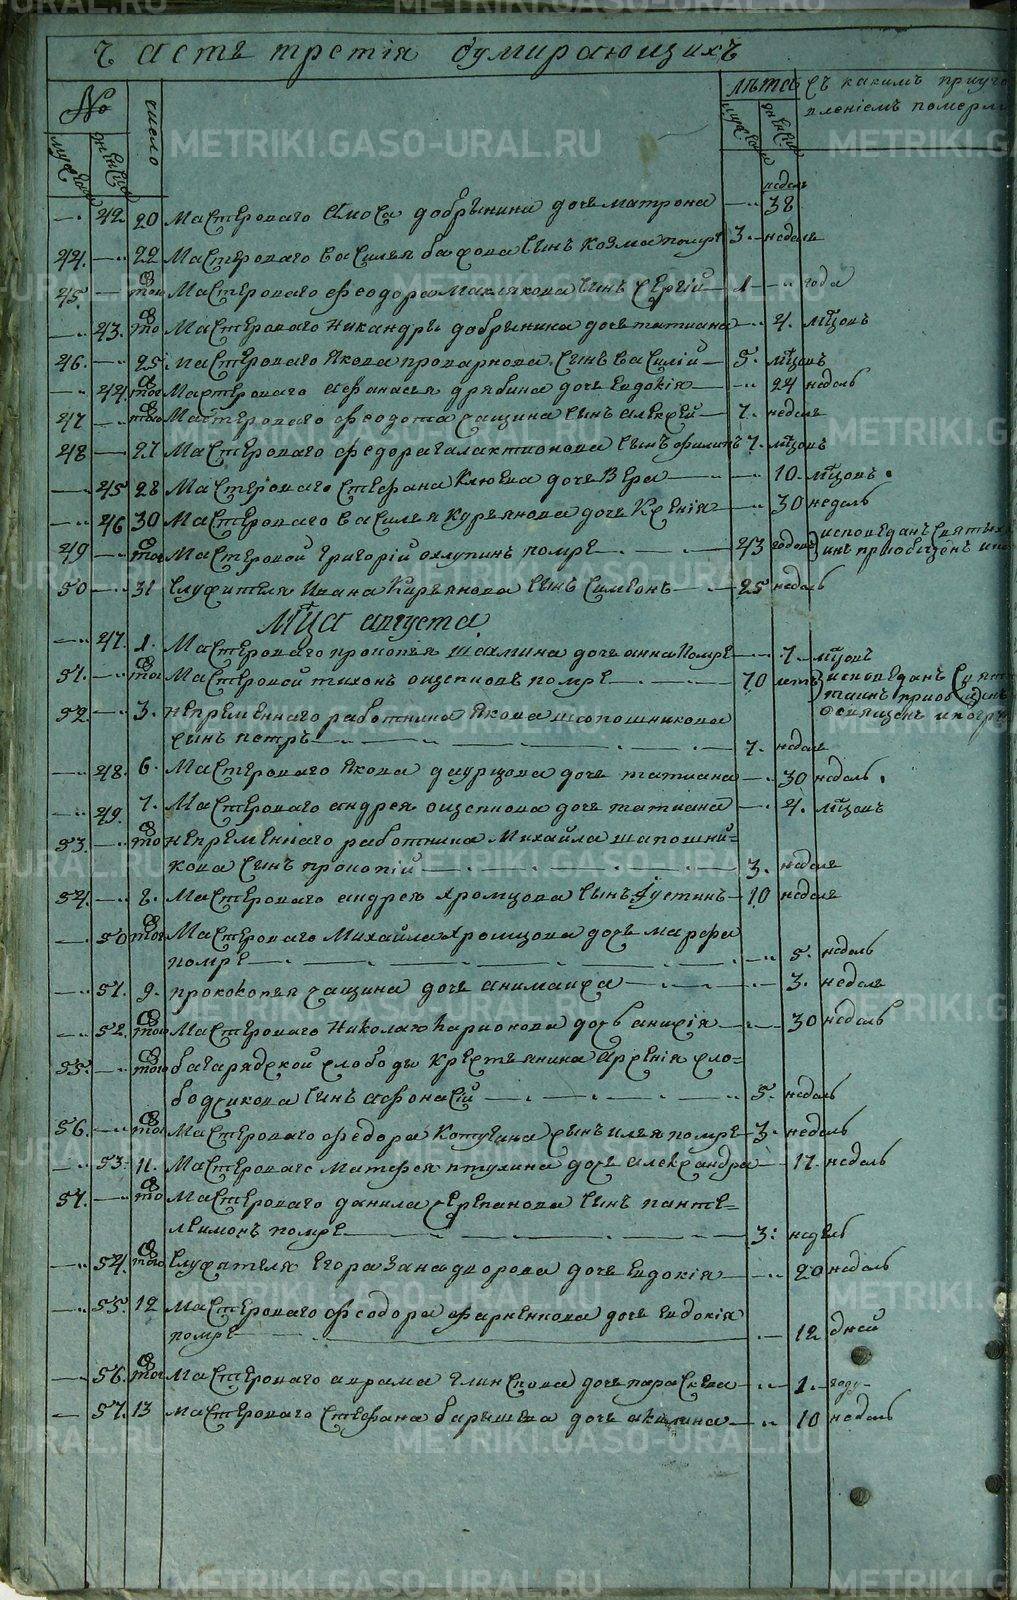 Часть третія оумирающихъ
№
мужеска
женска
число
лѣта
мужеска
женска
съ какимъ приуго
вленіемъ померли
недель
— 42 20 Мастероваго Амоса добрынина дочь матрона — 38
44. — 22 Мастероваго василья бажова сынъ козма помре 3. недель
45. — тог Мастероваго феодора Маклакова сынъ Сергій 1 — года
— 43. то Мастероваго Никандры добрынина дочь татиана — 4. мцовъ
46. — 25 мастероваго Якова пономарiова сынъ василій 5. мцовъ
— 44 тог Мастероваго афанасья дрябина дочь евдокія — 24 недель
47 — того Мастероваго феодота сащина сынъ алексей 7. недель
48 — 27 Мастероваго федора галактионова сынъ филипъ 7. мцовъ
— 45 28 Мастероваго стефана Клюева дочь Вера — 10. мцовъ.
— 46 30 Мастероваго василья Курьянова дочь Ксенія — 30 недель
49 — тог Мастеровой григорій охлупинъ помре 43 годовъ исповеданъ святыхъ
инъ приобщенъ и по
50 — 31 служителя Ивана Кирьянова сынъ симеонъ 25 недель
Мца августа
— 47. 1. Мастероваго прокопья шахмина дочь анна помре — 7. мцовъ
51. — тог Мастеровой тихонъ ощепковъ помре 70 летъ исповеданъ Свят
таинъ приобщенъ
освященъ и погре
52. — 3. непременнаго работника Якова шапошникова
сынъ петръ 7. недель
— 48. 6. Мастероваго Якова даурцова дочь татиана — 30 недель.
— 49. 7. Мастероваго андрея ощепкова дочь татиана — 4. мцовъ
53. — то непременнаго работника Михайла шапошни=
кова сынъ прокопій 3. недель
54. — 8. Мастероваго андрея хромцова сынъ Густинъ 10 недель
— 50 тог Мастероваго Михайла хромцова дочь марфа
помре — 5. недель
— 51. 9. прокопья сащина дочь анимаиса — 3. неделя
— 52. того Мастероваго Николая Ларионова дочь анисія — 30 недель
55. — того багарядской слободы крестьянина арсенія сло=
бодчикова сынъ афонасій 5. недель
56. — тог Мастероваго федора Котугина сынъ илья помре 3. недель
— 53. 11. Мастероваго матфея птухина дочь александра — 17. недель
57. — то Мастероваго данила черепанова сынъ панте=
леимонъ помре 3: недель
— 54. того служителя егора Занадворова дочь евдокія — 20 недель
— 55. 12 Мастероваго феодора фарненкова дочь евдокія
помре — 12 дней
— 56. тог Мастероваго аврама глинскова дочь параскева — 1. году
— 57. 13 мастероваго стефана барышева дочь акилина — 10 недель
METRIKI.GASO-URAL.RU